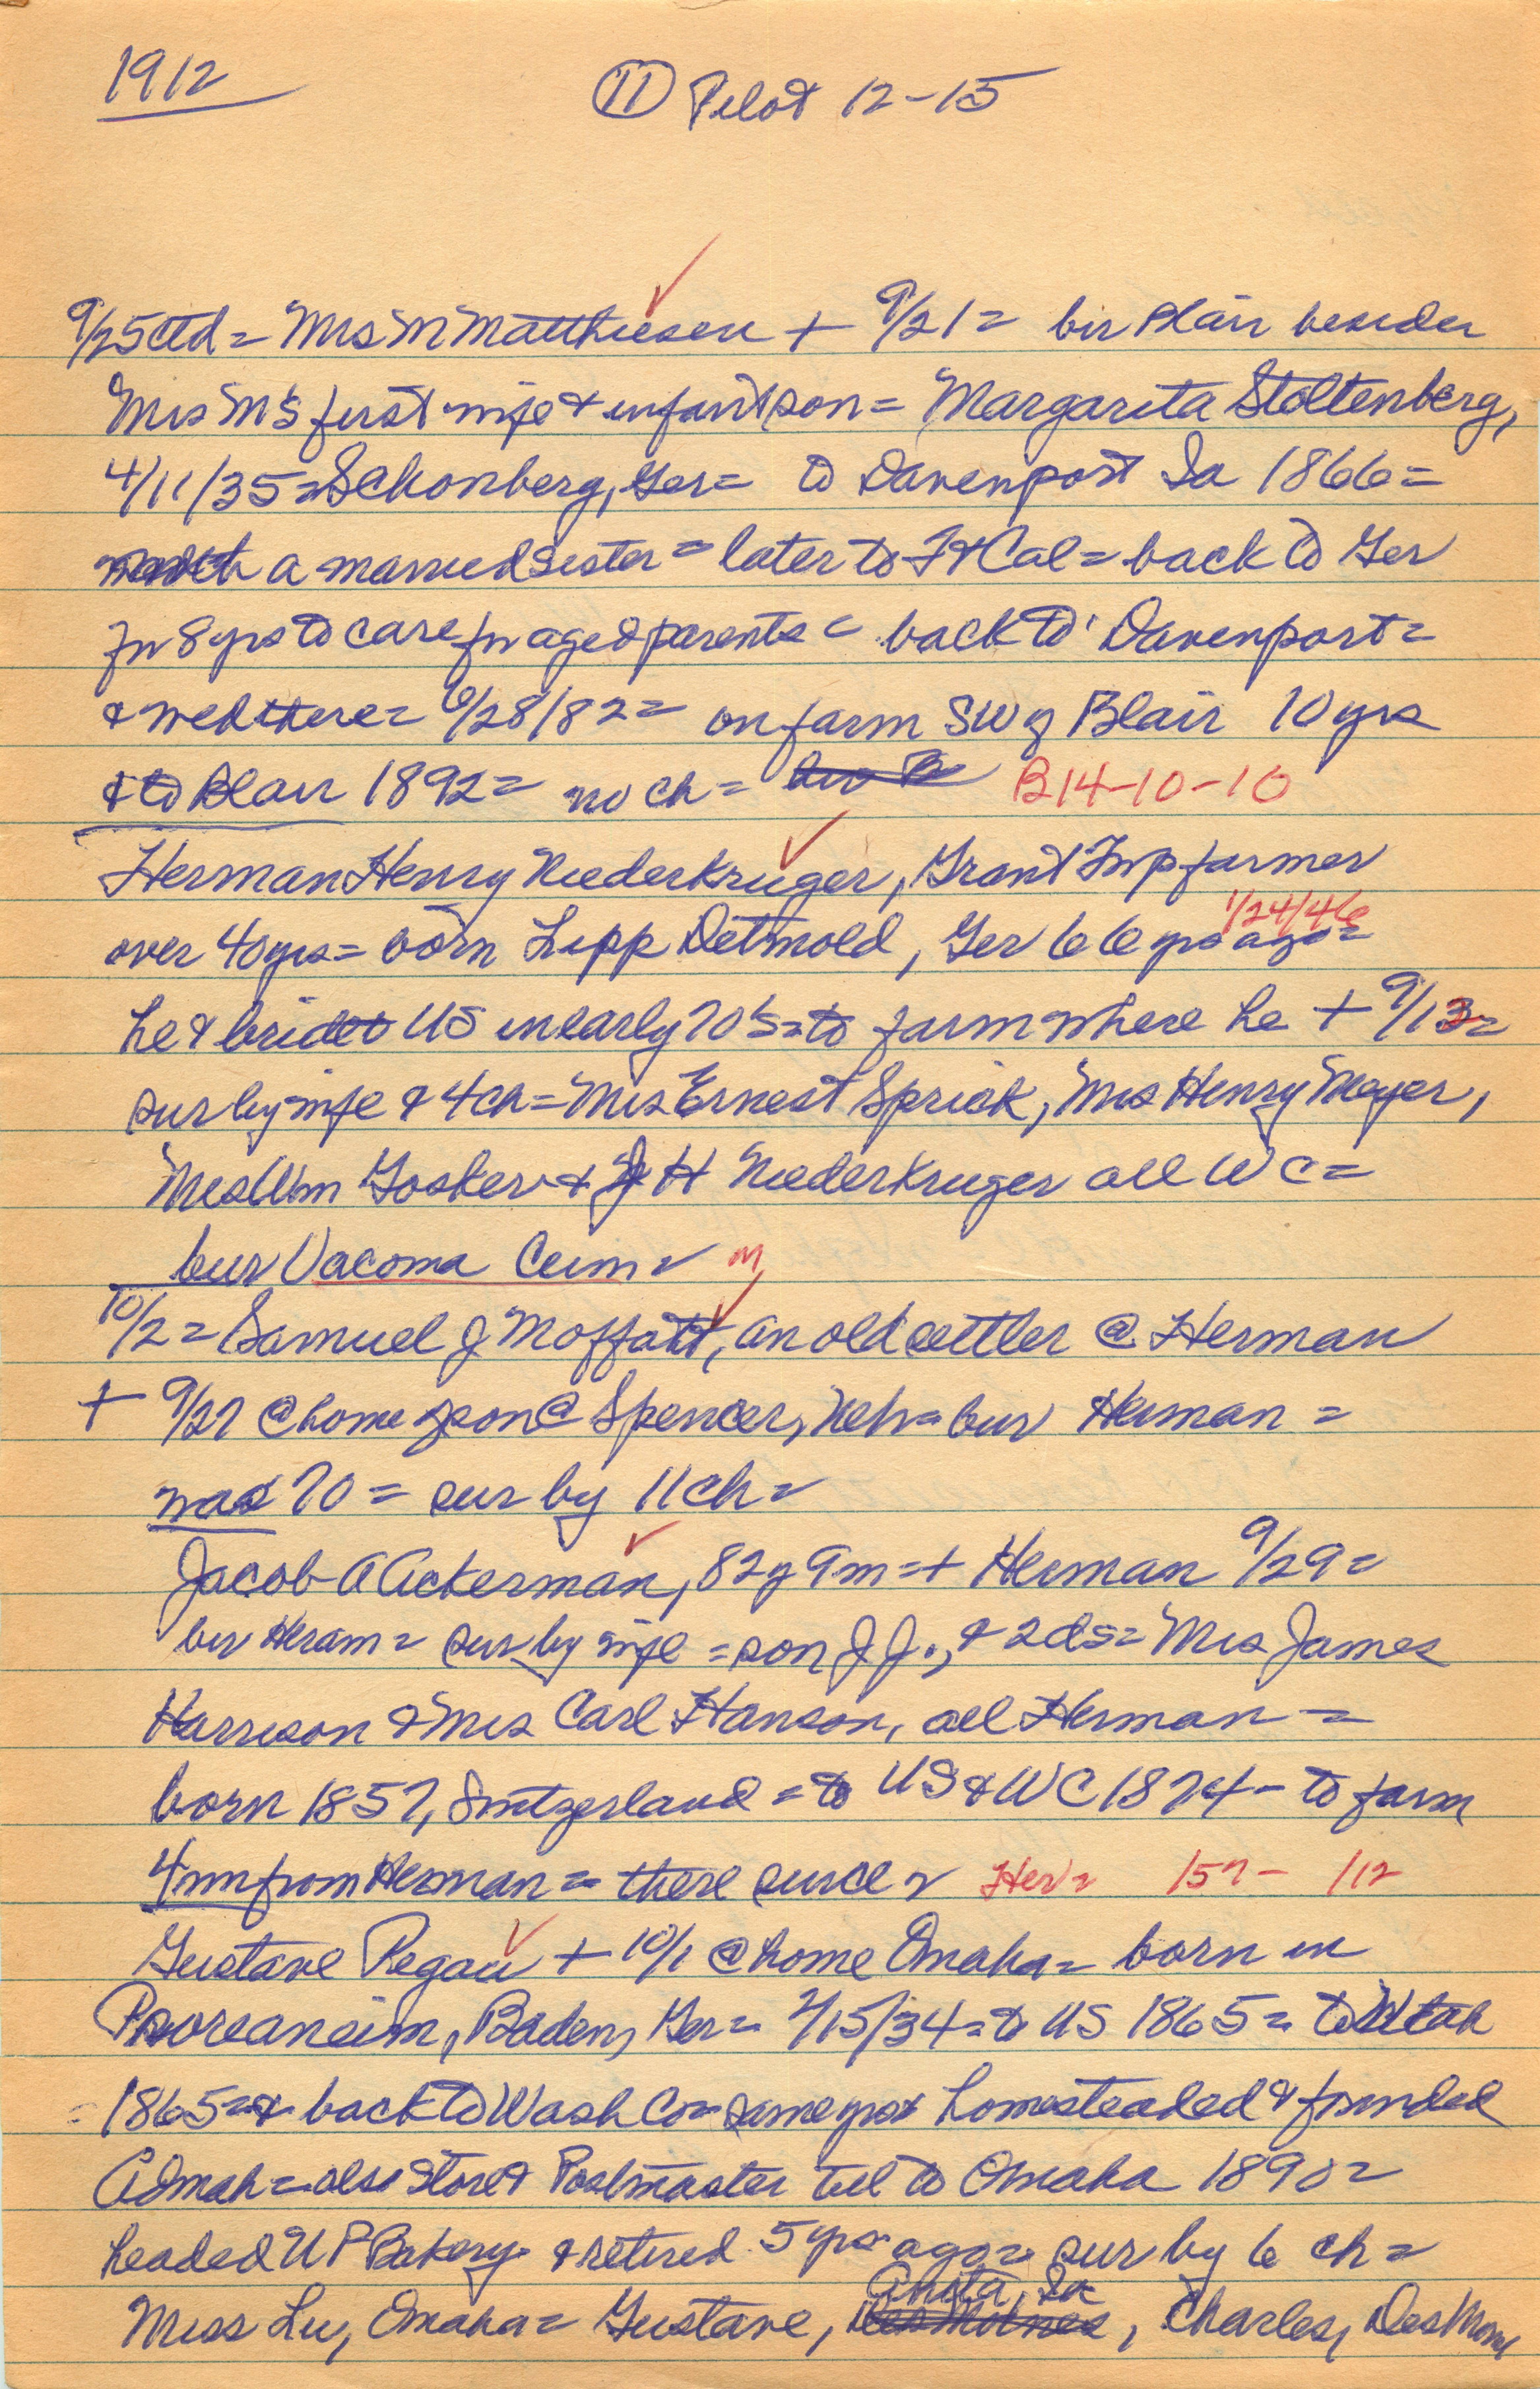 1912
(11) Pilot 12-15
9/25ctd = Mrs M Matthiesen + 9/21 = bur Blair besides
Mrs M's first wife & infant son = Margarita Stoltenberg,
4/11/35 = Schonberg, Ger = to Davenport Ia 1866 =
a married sister = later to Cal = back to Ger
for 8 yrs to care for aged parents = back to Davenport =
& wed there = 6/28/82 = on farm SW of Blair 10 yrs
& to Blair 1892 = no ch = B14-10-10
Herman Henry Niederkruger, Grant Twp farmer
1/24/46
over 40 yrs = born Lipp Detmold, Ger 66 yrs ago =
he & bride to US in early 70's = to farm where he + 9/13 =
sur by wife & 4 ch = Mrs Ernest Sprick, Mrs Henry Meyer,
Mrs Wm Gosker & H Niederkruger all WC =
bur Vacoma Cem = M
10/2 = Samuel J Moffatt, an old settler @ Herman
+ 9/27 @ home of son @ Spencer, Neb = bur Herman =
was 70 = sur by 11 ch =
Jacob A Ackerman, 82y 9m = + Herman 9/29 =
bur Heram = sur by wife = son J J., & 2 ds = Mrs James
Harrison & Mrs Carl Hanson, all Herman =
born 1857, Switzerland = to US & WC 1874 - to farm
4 m from Herman = there since = Her = 157 - 112
Gustave Pegau + 10/1 @ home Omaha = born in
Baden, Ger = 2/15/34 = to US 1865 = to Utah
1865 = & back to Wash Co = same yr & homesteaded & founded
Admah = also store & Postmaster till to Omaha 1890 =
headed UP Bakery & retired 5 yrs ago = sur by 6 ch =
Anita, Ia
Miss Lu, Omaha = Gustave, Des Moines, Charles, Des Moines